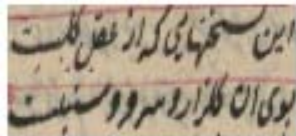 این سخنهایی که از عقل کلست
بوی آن گلزار و سرو و سنبلست